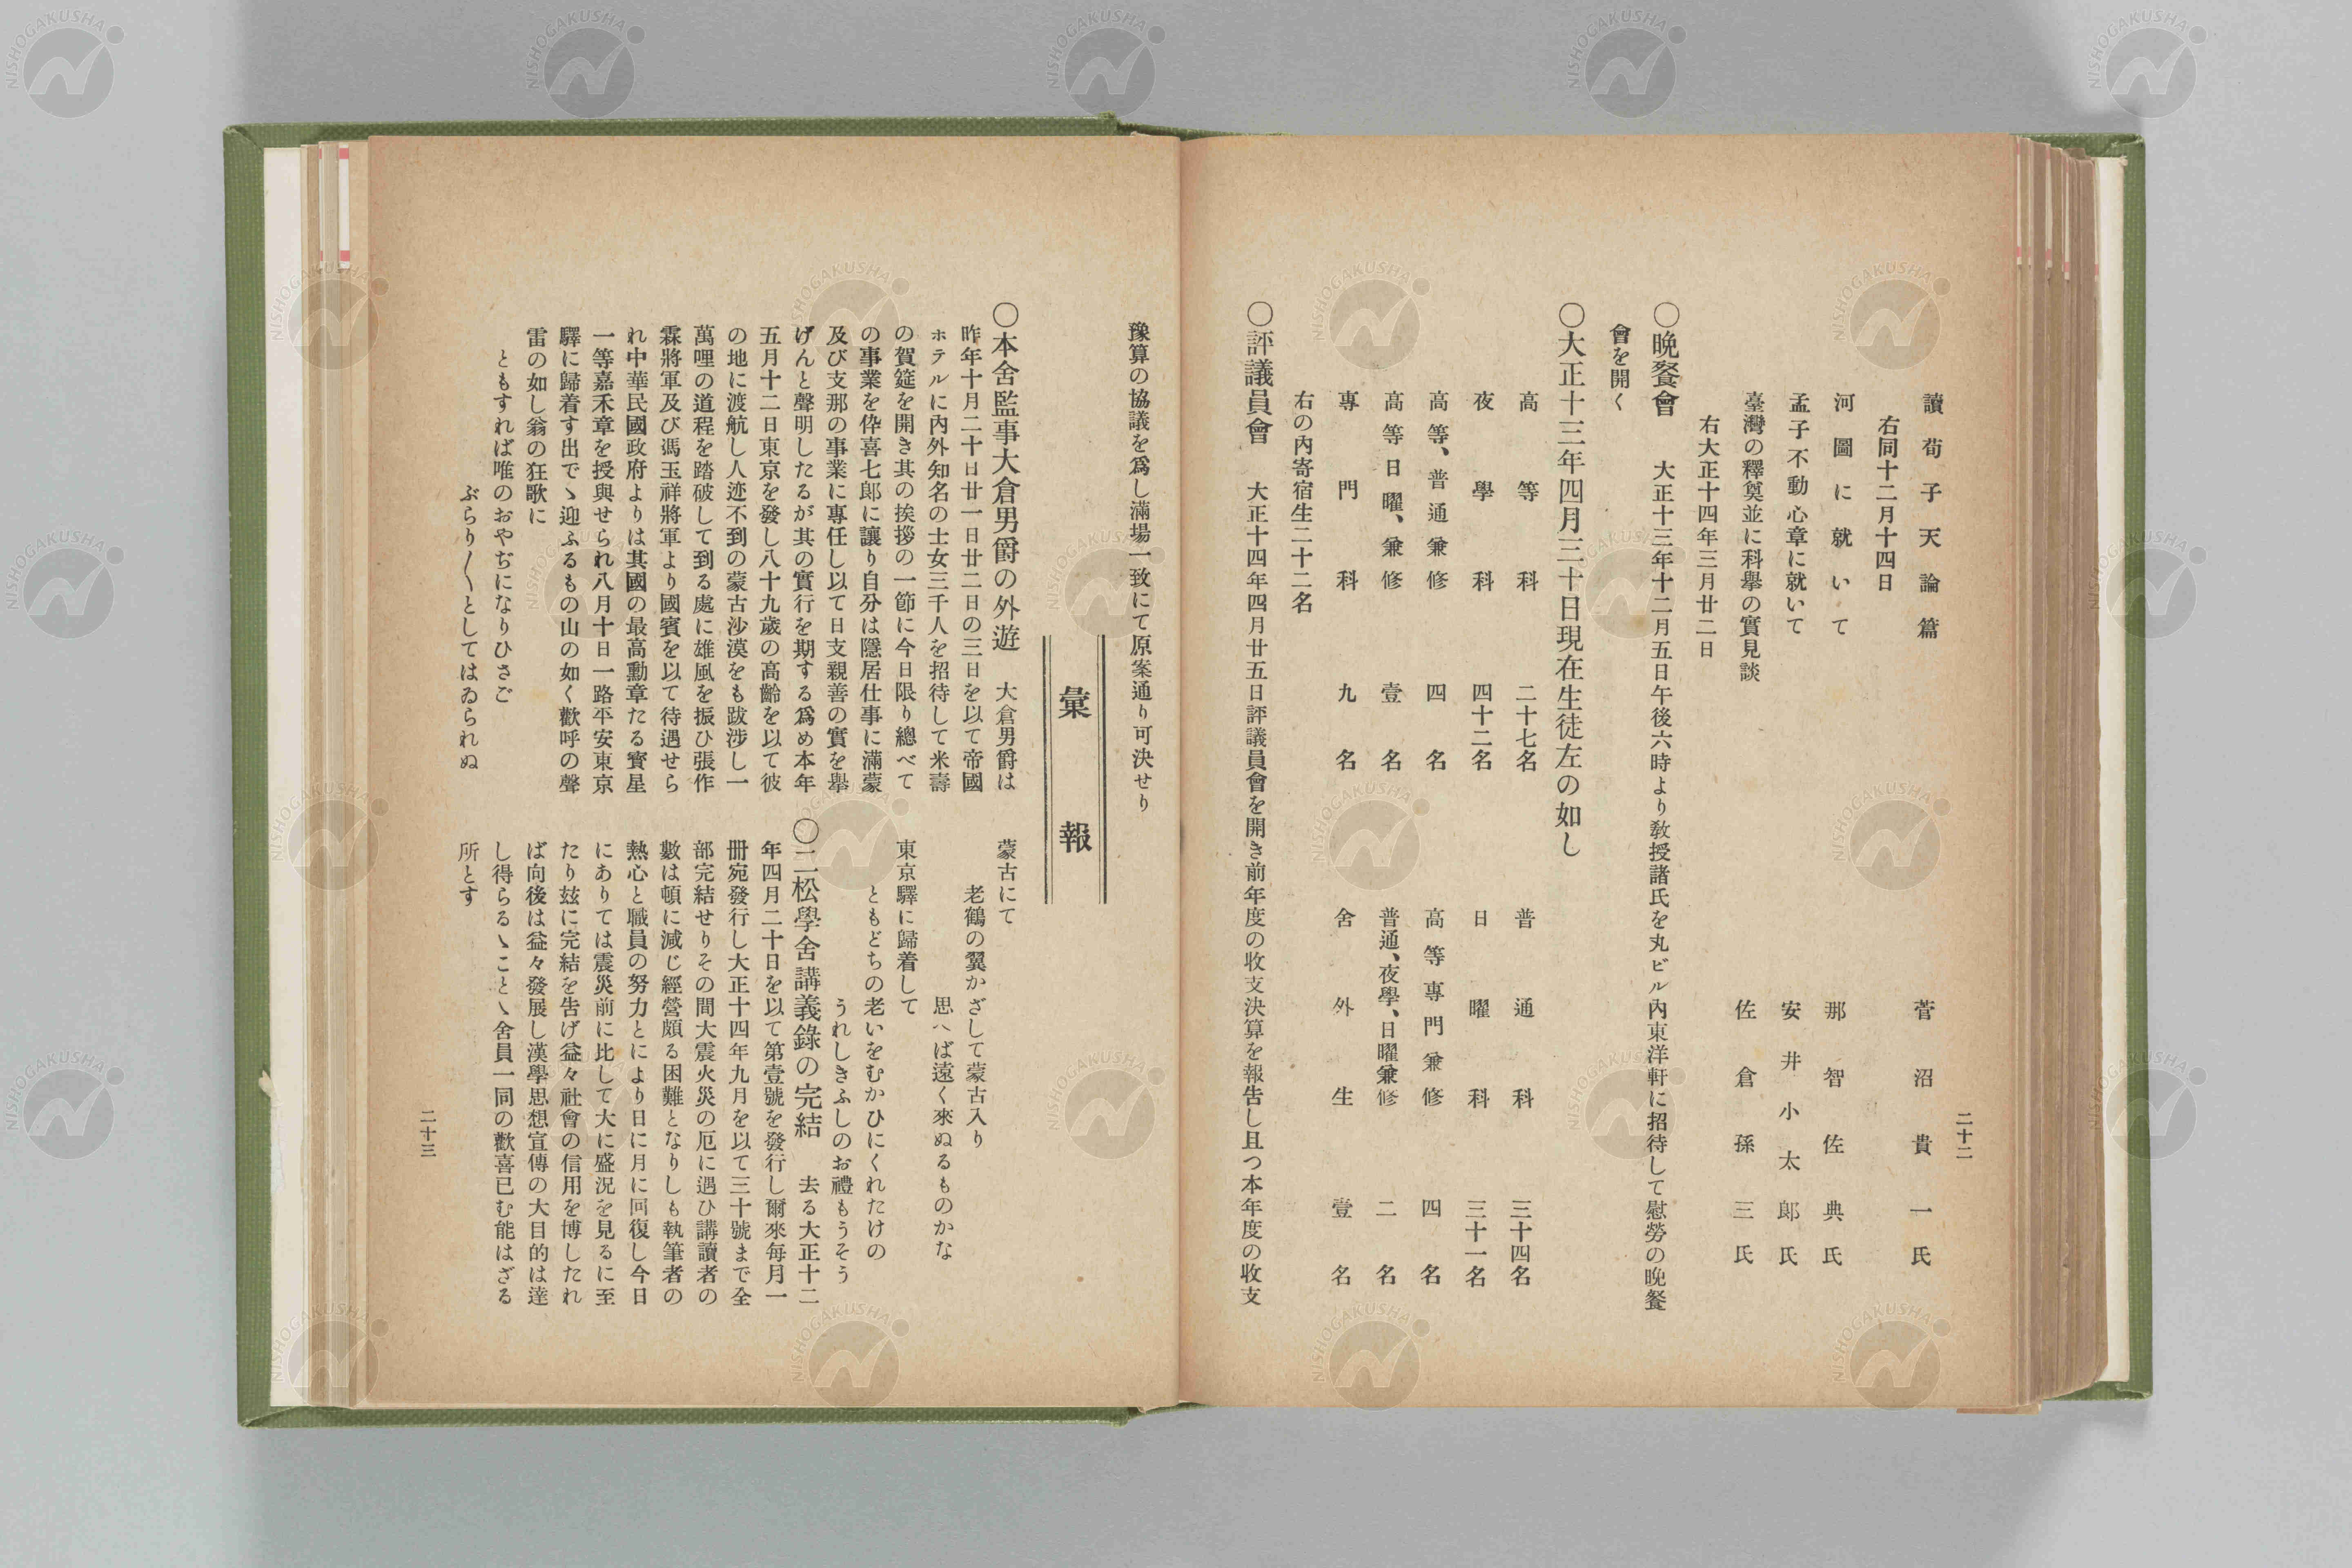 二十二
讀荀子天論篇　菅沼貴一氏
右同十二月十四日
河圖に就いて　那智佐典氏
孟子不動心章に就いて　安井小太郞氏
臺灣の釋奠並に科擧の實見談　佐倉孫三氏
右大正十四年三月廿二日
〇晩餐會　大正十三年十二月五日午後六時より敎授諸氏を丸ビル內東洋軒に招待して慰勞の晩餐
會を開く
〇大正十三年四月三十日現在生徒左の如し
高等科　二十七名　普通科　三十四名
夜學科　四十二名　日曜科　三十一名
高等、普通兼修　四名　高等專門兼修　四名
高等日曜、兼修　壹名　普通、夜學、日曜兼修　二名
專門科　九名　舍外生　壹名
右の內寄宿生二十二名
〇評議員會　大正十四年四月廿五日評議員會を開き前年度の收支決算を報告し且つ本年度の收支
豫算の協議を爲し滿場一致にて原案通り可決せり
彙報
〇本舍監事大倉男爵の外遊　大倉男爵は
昨年十月二十日廿一日廿二日の三日を以て帝國
ホテルに內外知名の士女三千人を招待して米壽
の賀筵を開き其の挨拶の一節に今日限り總べて
の事業を伜喜七郞に讓り自分は隱居仕事に滿蒙
及び支那の事業に專任し以て日支親善の實を擧
げんと聲明したるが其の實行を期する爲め本年
五月十二日東京を發し八十九歲の高齡を以て彼
の地に渡航し人迹不到の蒙古沙漠をも跋涉し一
萬哩の道程を踏破して到る處に雄風を振ひ張作
霖將軍及び馮玉祥將軍より國賓を以て待遇せら
れ中華民國政府よりは其國の最高勳章たる寳星
一等嘉禾章を授與せられ八月十日一路平安東京
驛に歸着す出でゝ迎ふるもの山の如く歡呼の聲
雷の如し翁の狂歌に
ともすれば唯のおやぢになりひさご
ぶらり〱としてはゐられぬ
蒙古にて
老鶴の翼かざして蒙古入り
思へば遠く來ぬるものかな
東京驛に歸着して
ともどちの老いをむかひにくれたけの
うれしきふしのお禮もうそう
〇二松學舍講義錄の完結　去る大正十二
年四月二十日を以て第壹號を發行し爾來每月一
冊宛發行し大正十四年九月を以て三十號まで全
部完結せりその間大震火災の厄に遇ひ講讀者の
數は頓に減じ經營頗る困難となりしも執筆者の
熱心と職員の努力とにより日に月に回復し今日
にありては震災前に比して大に盛況を見るに至
たり玆に完結を告げ益々社會の信用を博したれ
ば向後は益々發展し漢學思想宣傳の大目的は達
し得らるゝことゝ舍員一同の歡喜已む能はざる
所とす
二十三